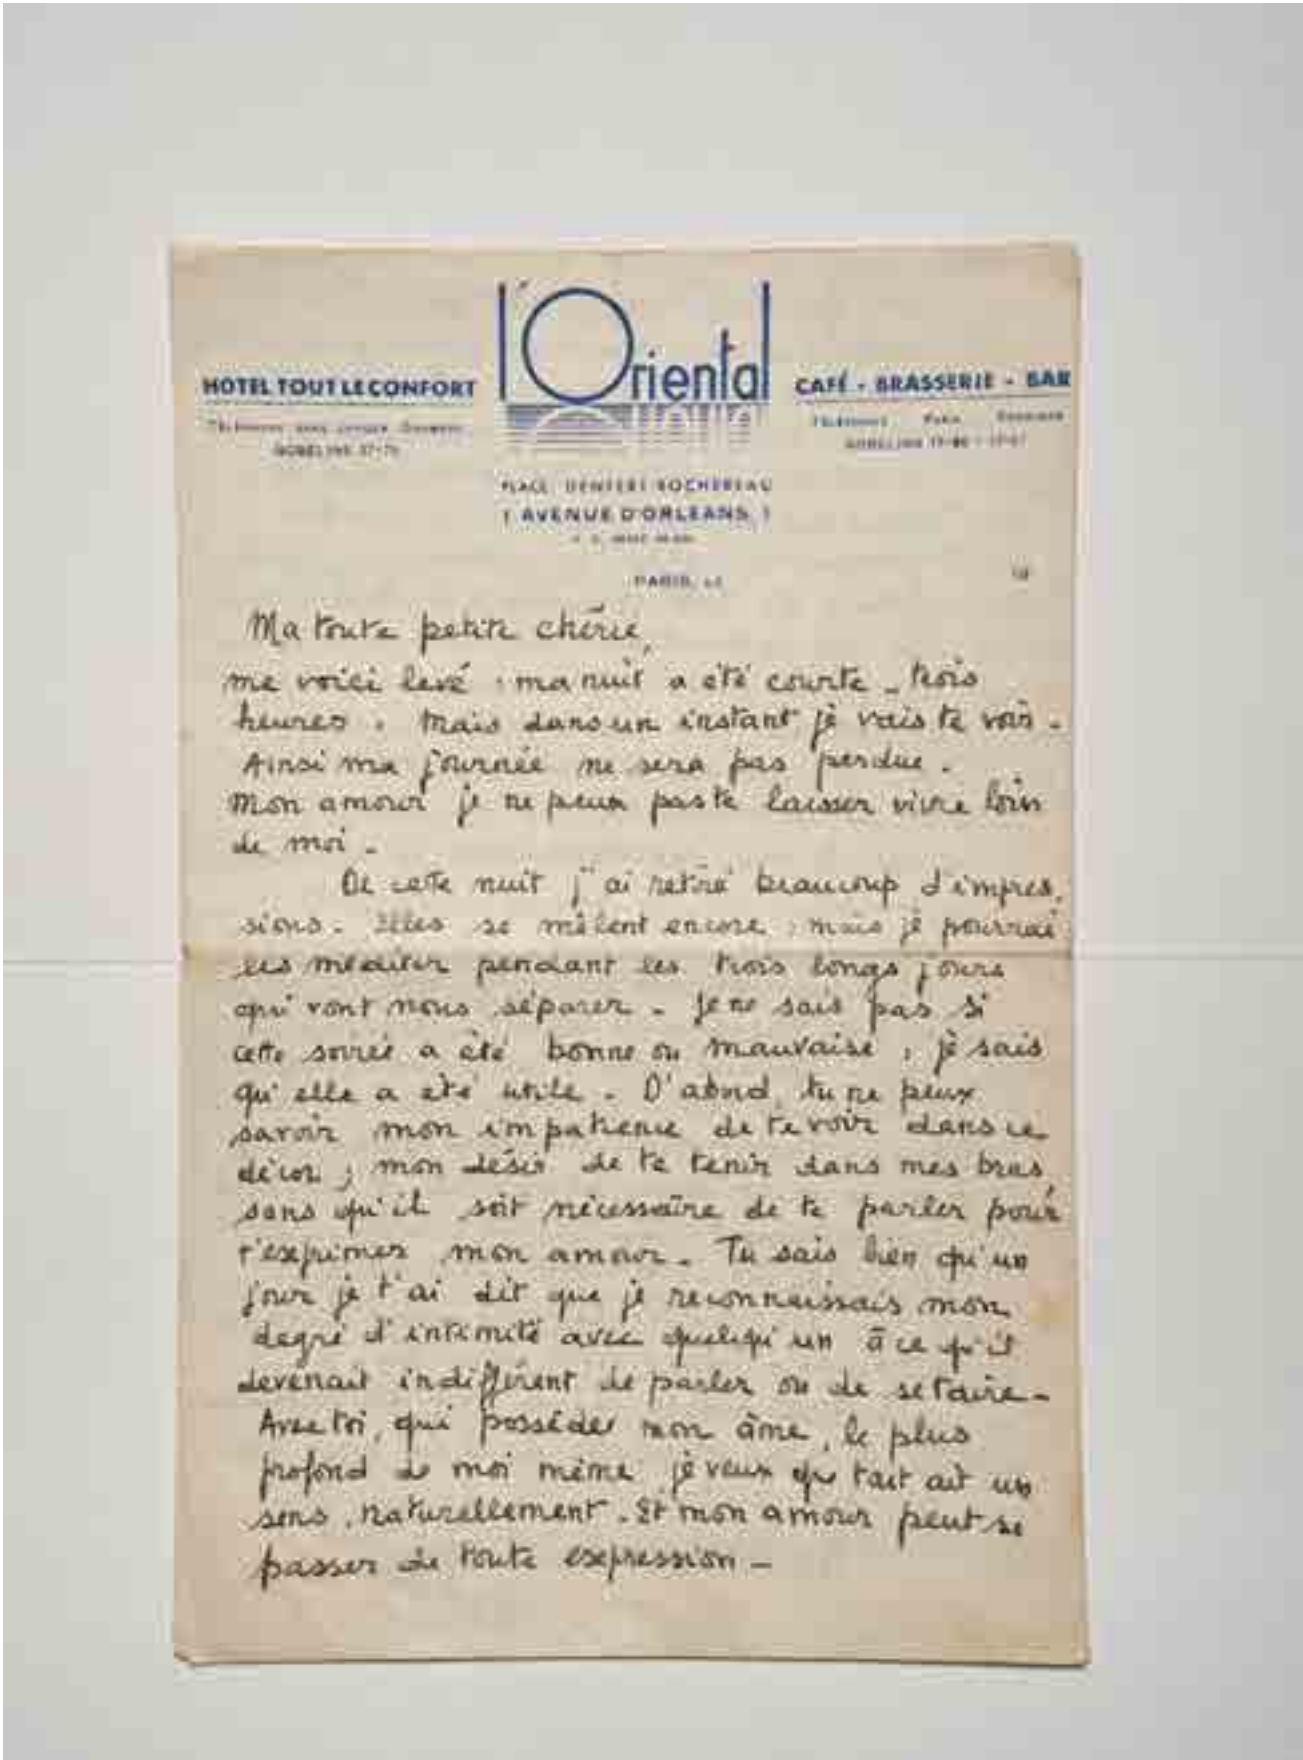 l'Oriental
HOTEL TOUT LE CONFORT
CAFÉ - BRASSERIE - BAR
PLACE DENFERT-ROCHEREAU
( AVENUE D'ORLEANS )
PARIS, LE
19
Ma toute petite chérie,
me voici levé : ma nuit a été courte _ trois
heures . Mais dans un instant je vais te voir _
Ainsi ma journée ne sera pas perdue .
Mon amour je ne peux pas te laisser vivre loin
de moi _
De cette nuit j'ai retiré beaucoup d'impres-
sions . Elles se mêlent encore ; mais je pourrai
les méditer pendant les trois longs jours
qui vont nous séparer _ Je ne sais pas si
cette soirée a été bonne ou mauvaise ; je sais
qu'elle a été utile . D'abord, tu ne peux
savoir mon impatience de te voir dans ce
décor ; mon désir de te tenir dans mes bras,
sans qu'il soit nécessaire de te parler pour
t'exprimer mon amour _ Tu sais bien qu'un
jour je t'ai dit que je reconnaissais mon
degré d'intimité avec quelqu'un à ce qu'il
devenait indifférent de parler ou de se taire _
Avec toi, qui possèdes mon âme, le plus
profond de moi même je veux que tout ait un
sens , naturellement . Et mon amour peut se
passer de toute expression _